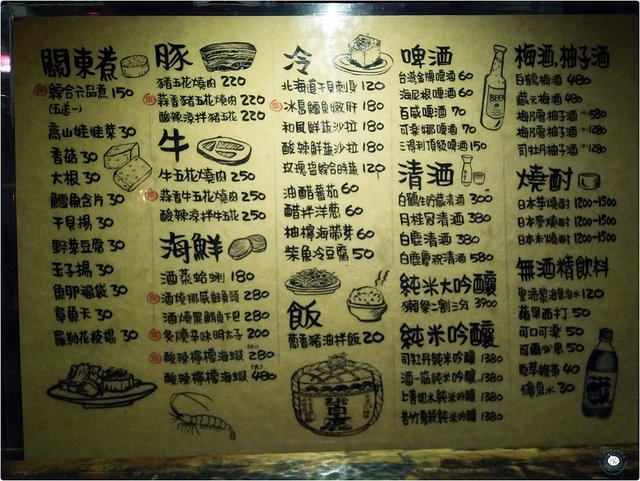 關東煮
綜合六品煮 150
(五送一)
高山娃娃菜 30
香菇 30
大根 30
鱈魚含片 30
干貝揚 30
野菜豆腐 30
玉子揚 30
魚卵福袋 30
章魚卡 30
羅勒花枝揚 30
豚
豬五花燒肉 220
蒜香豬五花燒肉 220
酸辣涼拌豬五花 220
牛
牛五花燒肉 250
蒜香牛五花燒肉 250
酸辣涼拌牛五花 250
海鮮
酒蒸蛤蜊 180
酒燒挪威鮭魚頭 280
酒燒黑鮪魚下巴 280
炙燒辛味明太子 200
酸辣檸檬海蝦(小) 280
酸辣檸檬海蝦(大) 480
冷
北海道干貝刺身 120
冰島鱈魚嫩肝 180
和風鮮蔬沙拉 180
酸辣鮮蔬沙拉 180
玫瑰鹽綜合時蔬 120
油醋蕃茄 60
醋拌洋蔥 60
柚檸海帶芽 60
柴魚冷豆腐 50
飯
蔥香豬油拌飯 20
啤酒
台灣金牌啤酒 60
海尼根啤酒 60
百威啤酒 70
可樂娜啤酒 70
三得利頂級啤酒 150
BEER
清酒
白鶴生貯藏清酒 300
月桂冠清酒 380
白鹿清酒 380
白鹿慶祝清酒 580
純米大吟釀
獺祭二割三分 3900
純米吟釀
司牡丹純米吟釀 1380
酒一筋純米吟釀 1380
上善如水純米吟釀 1380
若竹鬼殺純米吟釀 1380
梅酒,柚子酒
白鶴梅酒 480
藏元梅酒 480
梅乃宿柚子酒 580
梅乃宿柚子酒 1280
司牡丹柚子酒 1280
燒酎
日本芋燒酎 1200~1500
日本麥燒酎 1200~1500
日本米燒酎 1200~1500
無酒精飲料
聖沛黎洛氣泡水 120
蘋果西打 50
可口可樂 50
可爾必思 50
原萃綠茶 40
礦泉水 30
白鹿